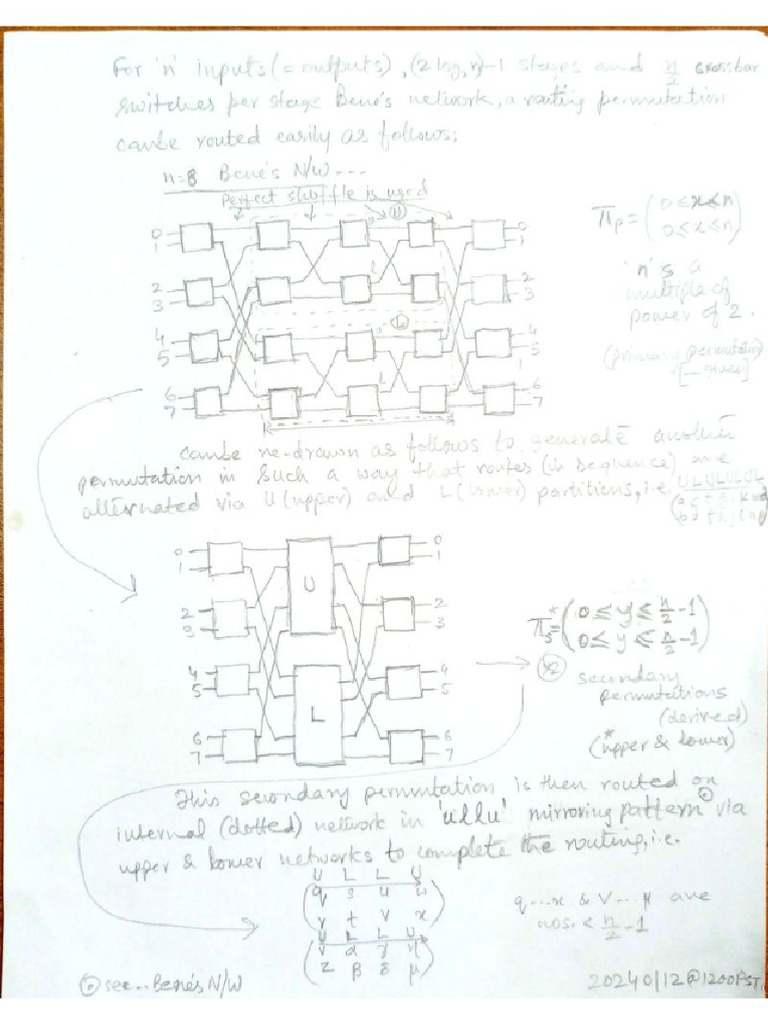 For 'n' inputs (= outputs), (2 log₂ n)-1 stages and n/2 crossbar
switches per stage Bene's network, a routing permutation
can be routed easily as follows:
n=8 Bene's N/W ...
Perfect shuffle is used
U
0
1
2
3
4
5
6
7
u
l
L
u
l
0
1
2
3
4
5
6
7
πp = (0≤x≤n
0≤x≤n)
'n' is a
multiple of
power of 2.
(primary permutation)
[— given]
can be re-drawn as follows to generate another
permutation in such a way that routes (in sequence) are
alternated via U (upper) and L (lower) partitions, i.e. ULULULUL
0
1
2
3
4
5
6
7
U
L
0
1
2
3
4
5
6
7
πs* = (0 ≤ y ≤ n/2 -1
0 ≤ y ≤ n/2 -1)
x2
secondary
permutations
(derived)
(*upper & lower)
This secondary permutation is then routed on
internal (dotted) network in 'ullu' mirroring pattern via
upper & lower networks to complete the routing, i.e.
U L L U
(q s u w
r t v x)
U L L U
(ν α γ η
z β δ μ)
q...x & ν...μ are
nos. < n/2 -1
see... Bene's N/W
20240112@1200PST